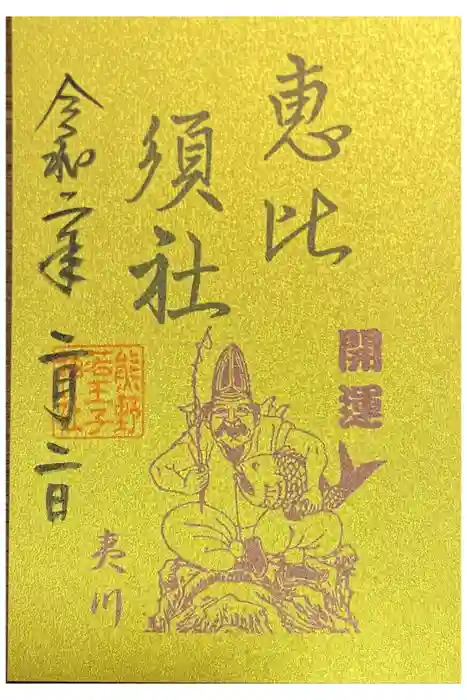 恵比
須社
開運
令和二年 二月二日
熊野
若王子
神社
夷川